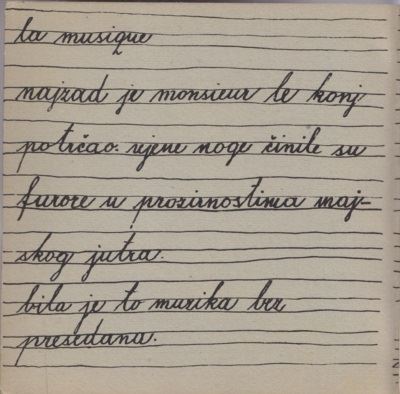 la musique
najzad je monsieur le konj
potrčao. njene noge činile su
furore u prozirnostima maj-
skog jutra.
bila je to muzika bez
presedana.